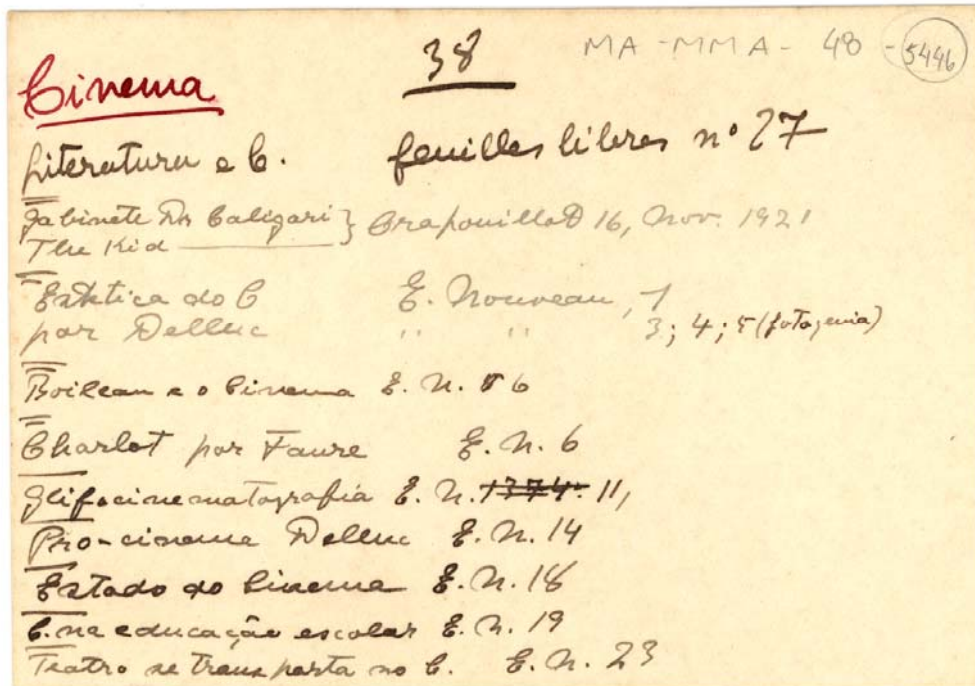 38 MA-MMA-48-5446
Cinema
Literatura e C. feuilles libres nº 27
Gabinete Dr Caligari } Crapouillot 16, Nov. 1921
The Kid
Estética do C E. Nouveau, 1
por Delluc " " 3; 4; 5 (fotogenia)
Boileau e o Cinema E. N. 6
Charlot por Faure E. N. 6
Glifocinematografia E. N. 11,
Pro-cinema Delluc E. N. 14
Estado do Cinema E. N. 18
C. na educação escolar E. N. 19
Teatro se transporta no C. E. N. 23